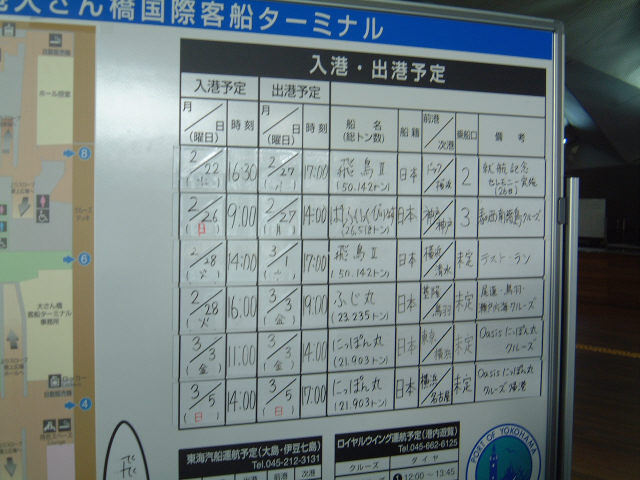 港大さん橋国際客船ターミナル
入港・出港予定
入港予定 出港予定
月 日 (曜日) 時刻 月 日 (曜日) 時刻 船名 (総トン数) 船籍 前港 次港 乗船口 備考
2/22 16:30 2/27 17:00 飛鳥II (50.142トン) 日本 ドック 横浜 2 就航記念 セレモニー実施
2/26 (日) 9:00 2/27 (月) 14:00 ぱしふぃっくびいなす (26,518トン) 日本 神戸 神戸 3 クルーズ
2/28 (火) 14:00 3/1 17:00 飛鳥II (50.142トン) 日本 横浜 清水 未定 テストラン
2/28 (火) 16:00 3/3 (金) 19:00 ふじ丸 (23.235トン) 日本 鳥羽 未定 尾道・鳥羽 クルーズ
3/3 (金) 11:00 3/3 (金) 14:00 にっぽん丸 (21.903トン) 日本 東京 横浜 未定 Oasis にっぽん丸 クルーズ
3/5 (日) 14:00 3/5 (日) 17:00 にっぽん丸 (21.903トン) 日本 横浜 名古屋 未定 Oasis にっぽん丸 クルーズ 帰港
東海汽船運航予定(大島・伊豆七島)
Tel.045-212-3131
ロイヤルウイング運航予定(港内遊覧)
Tel.045-662-6125
月 時刻 月 時刻 前港
クルーズ ダイヤ
12:00〜13:45
PORT OF YOKOHAMA
ホール控室
大さん橋
客船ターミナル
事務所
ロッカー
8
6
4